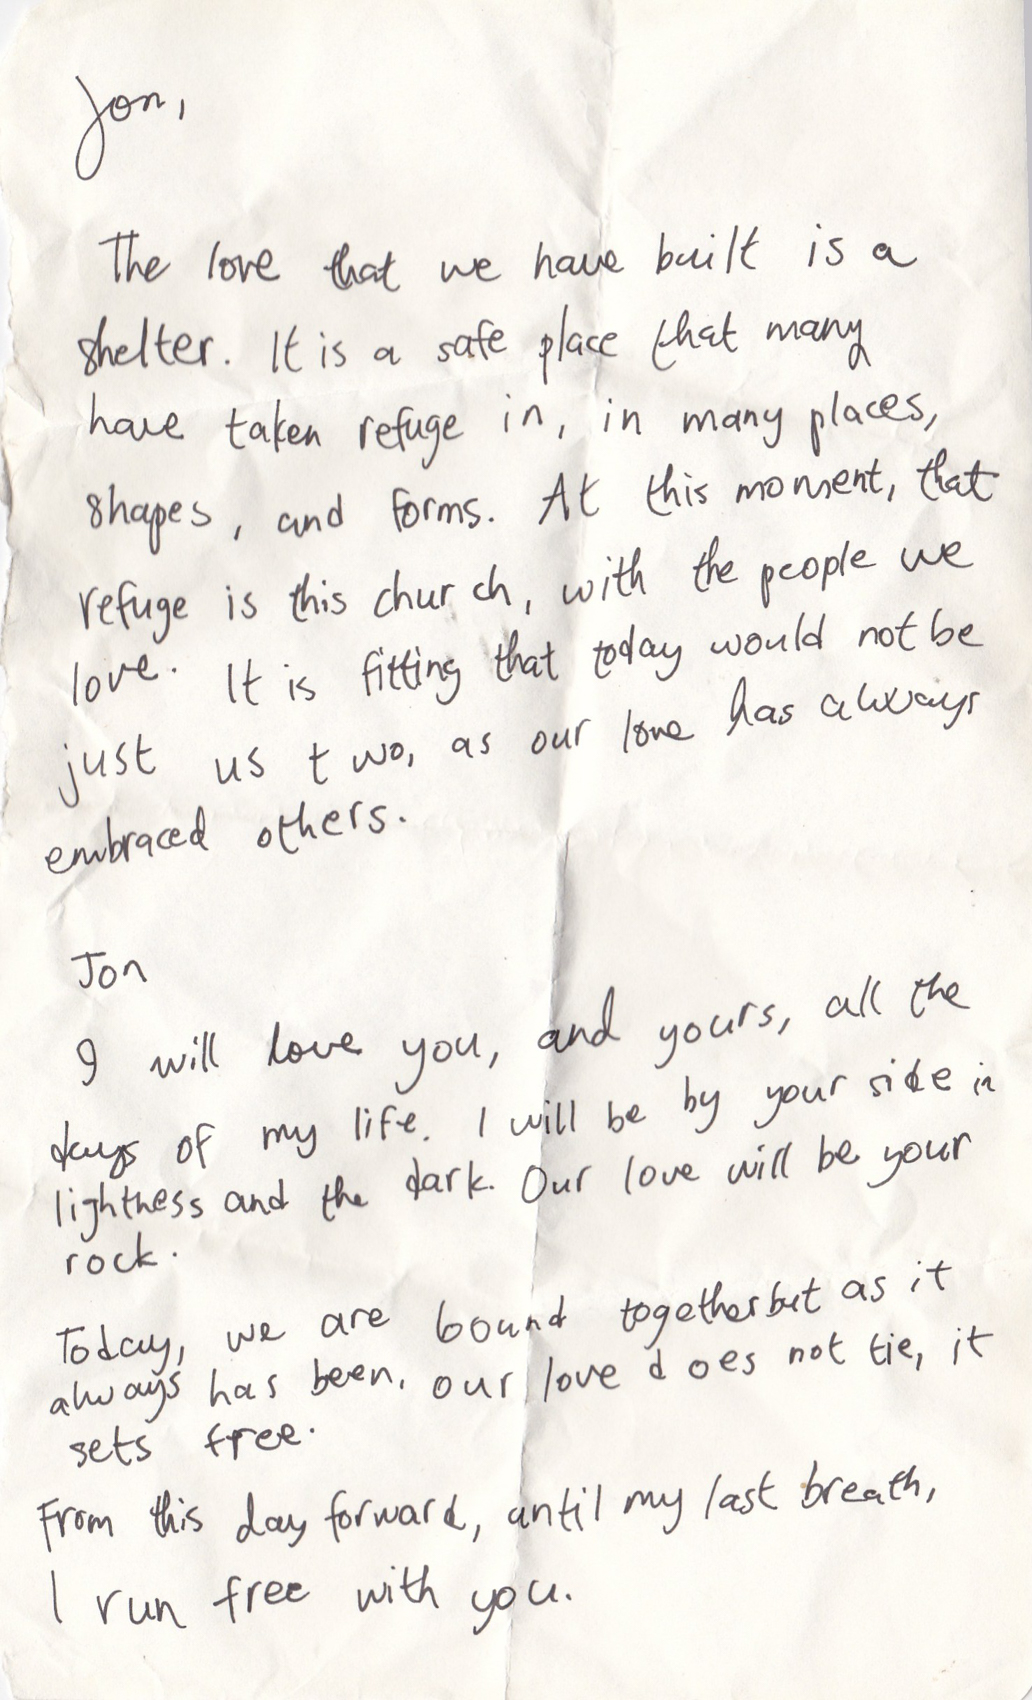 Jon,
The love that we have built is a
shelter. It is a safe place that many
have taken refuge in, in many places,
shapes, and forms. At this moment, that
refuge is this church, with the people we
love. It is fitting that today would not be
just us two, as our love has always
embraced others.
Jon
I will love you, and yours, all the
days of my life. I will be by your side in
lightness and the dark. Our love will be your
rock.
Today, we are bound together but as it
always has been, our love does not tie, it
sets free.
From this day forward, until my last breath,
I run free with you.